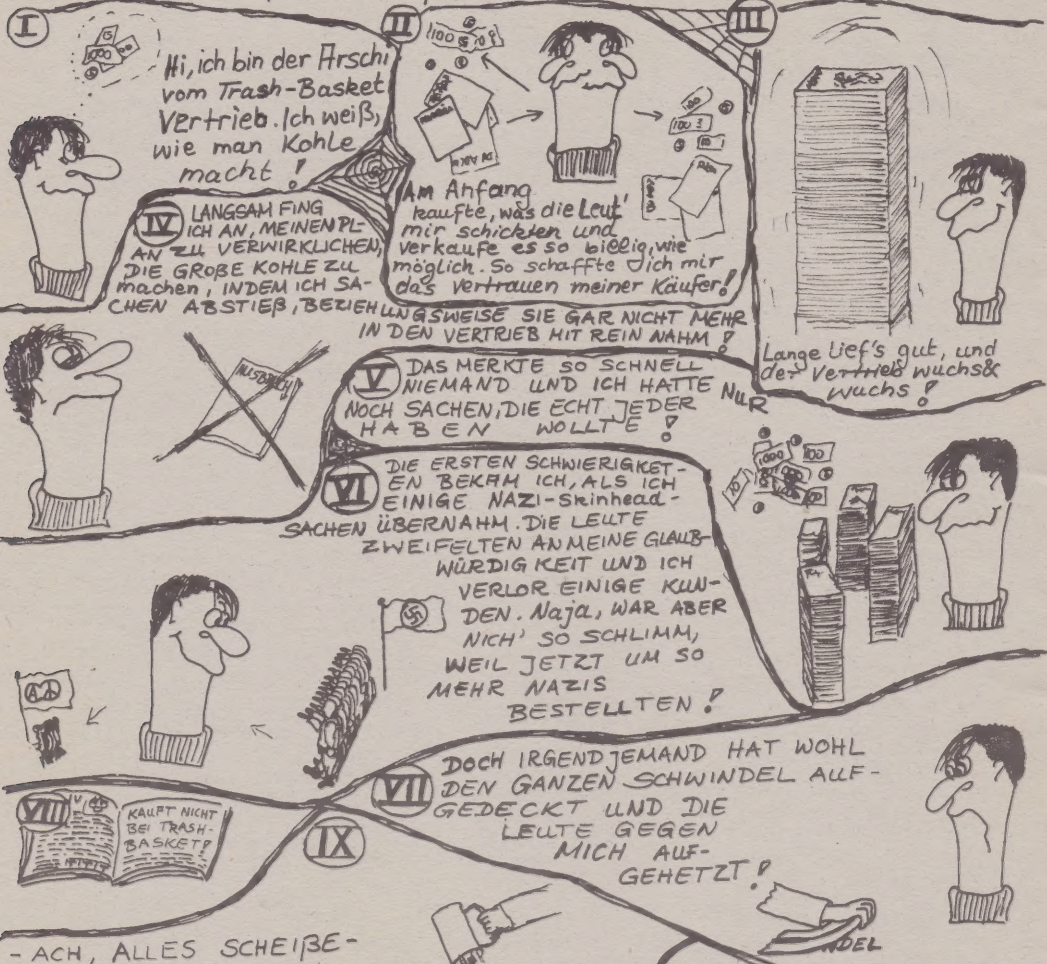 I
Hi, ich bin der Arschi
vom Trash-Basket
Vertrieb. Ich weiß,
wie man Kohle
macht!
II
Am Anfang
kaufte, was die Leut'
mir schickten und
verkaufe es so billig, wie
möglich. So schaffte ich mir
das Vertrauen meiner Käufer!
III
Lange lief's gut, und
der Vertrieb wuchs &
wuchs!
IV
LANGSAM FING
ICH AN, MEINEN PL-
AN ZU VERWIRKLICHEN,
DIE GROßE KOHLE ZU
machen, INDEM ICH SA-
CHEN ABSTIEß, BEZIEHUNGSWEISE SIE GAR NICHT MEHR
IN DEN VERTRIEB MIT REIN NAHM!
AUSBRUCH
V
DAS MERKTE SO SCHNELL
NIEMAND UND ICH HATTE NUR
NOCH SACHEN, DIE ECHT JEDER
HABEN WOLLTE!
1000
100
10
VI
DIE ERSTEN SCHWIERIGKET-
EN BEKAM ICH, ALS ICH
EINIGE NAZI-Skinhead-
SACHEN ÜBERNAHM. DIE LEUTE
ZWEIFELTEN AN MEINE GLAUB-
WÜRDIGKEIT UND ICH
VERLOR EINIGE KUN-
DEN. Naja, WAR ABER
NICH' SO SCHLIMM,
WEIL JETZT UM SO
MEHR NAZIS
BESTELLTEN!
VII
DOCH IRGENDJEMAND HAT WOHL
DEN GANZEN SCHWINDEL AUF-
GEDECKT UND DIE
LEUTE GEGEN
MICH AUF-
GEHETZT!
VIII
KAUFT NICHT
BEI TRASH-
BASKET!
IX
- ACH, ALLES SCHEIßE -
NDEL